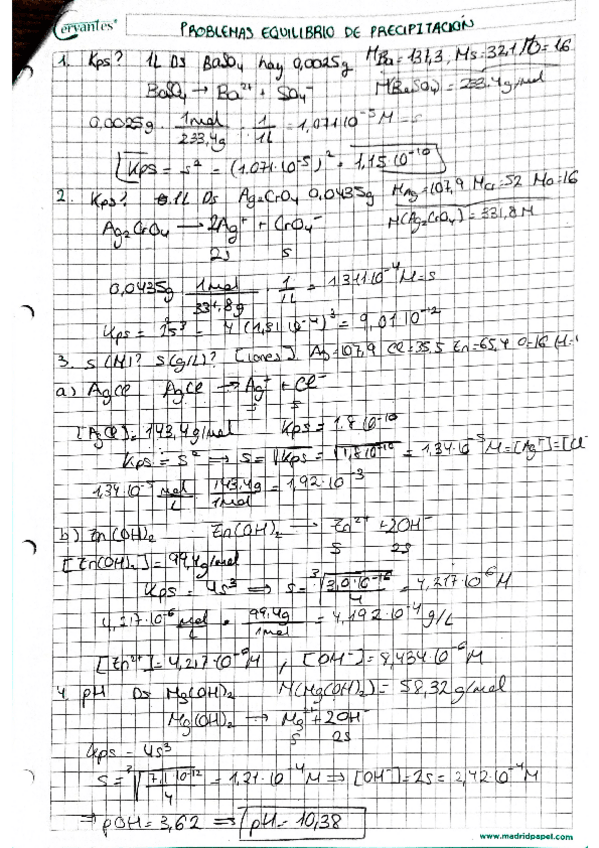 Cervantes
PROBLEMAS EQUILIBRIO DE PRECIPITACIÓN
1. Kps? 1L Ds BaSO₄ hay 0,0025g MBa=131,3, Ms=32,1 MO=16
BaSO₄ → Ba²⁺ + SO₄⁻ M(BaSO₄) = 233,4g/mol
0,0025g · 1mol/233,4g · 1/1L = 1,071·10⁻⁵ M = s
Kps = s² = (1,071·10⁻⁵)² = 1,15·10⁻¹⁰
2. Kps? 1L Ds Ag₂CrO₄ 0,0435g MAg=107,9 Mcr=52 Mo=16
Ag₂CrO₄ → 2Ag⁺ + CrO₄⁻ M(Ag₂CrO₄) = 331,8 M
2s s
0,0435g 1mol/331,8g · 1/1L = 1,311·10⁻⁴ M = s
Kps = s³ = 4 (1,31·10⁻⁴)³ = 9,01·10⁻¹²
3. s (M)? s (g/L)? [iones]. Ag=107,9 Cl=35,5 Zn=65,4 O=16 H=
a) AgCl AgCl → Ag⁺ + Cl⁻
s s
[AgCl] = 143,4g/mol Kps = 1,8·10⁻¹⁰
Kps = s² ⟹ s = √Kps = √1,8·10⁻¹⁰ = 1,34·10⁻⁵ M = [Ag⁺] = [Cl
1,34·10⁻⁵ mol/L 143,4g/1mol = 1,92·10⁻³
b) Zn(OH)₂ Zn(OH)₂ → Zn²⁺ + 2OH⁻
s 2s
[Zn(OH)₂] = 99,4g/mol
Kps = 4s³ ⟹ s = ³√3,0·10⁻¹⁶/4 = 4,217·10⁻⁶ M
4,217·10⁻⁶ mol/L · 99,4g/1mol = 4,192·10⁻⁴ g/L
[Zn²⁺] = 4,217·10⁻⁶ M , [OH⁻] = 8,434·10⁻⁶ M
4. pH Ds Mg(OH)₂ M(Mg(OH)₂) = 58,32 g/mol
Mg(OH)₂ → Mg²⁺ + 2OH⁻
s 2s
Kps = 4s³
s = ³√7,1·10⁻¹²/4 = 1,21·10⁻⁴ M ⟹ [OH⁻] = 2s = 2,42·10⁻⁴ M
→ pOH = 3,62 ⟹ pH = 10,38
www.madridpapel.com